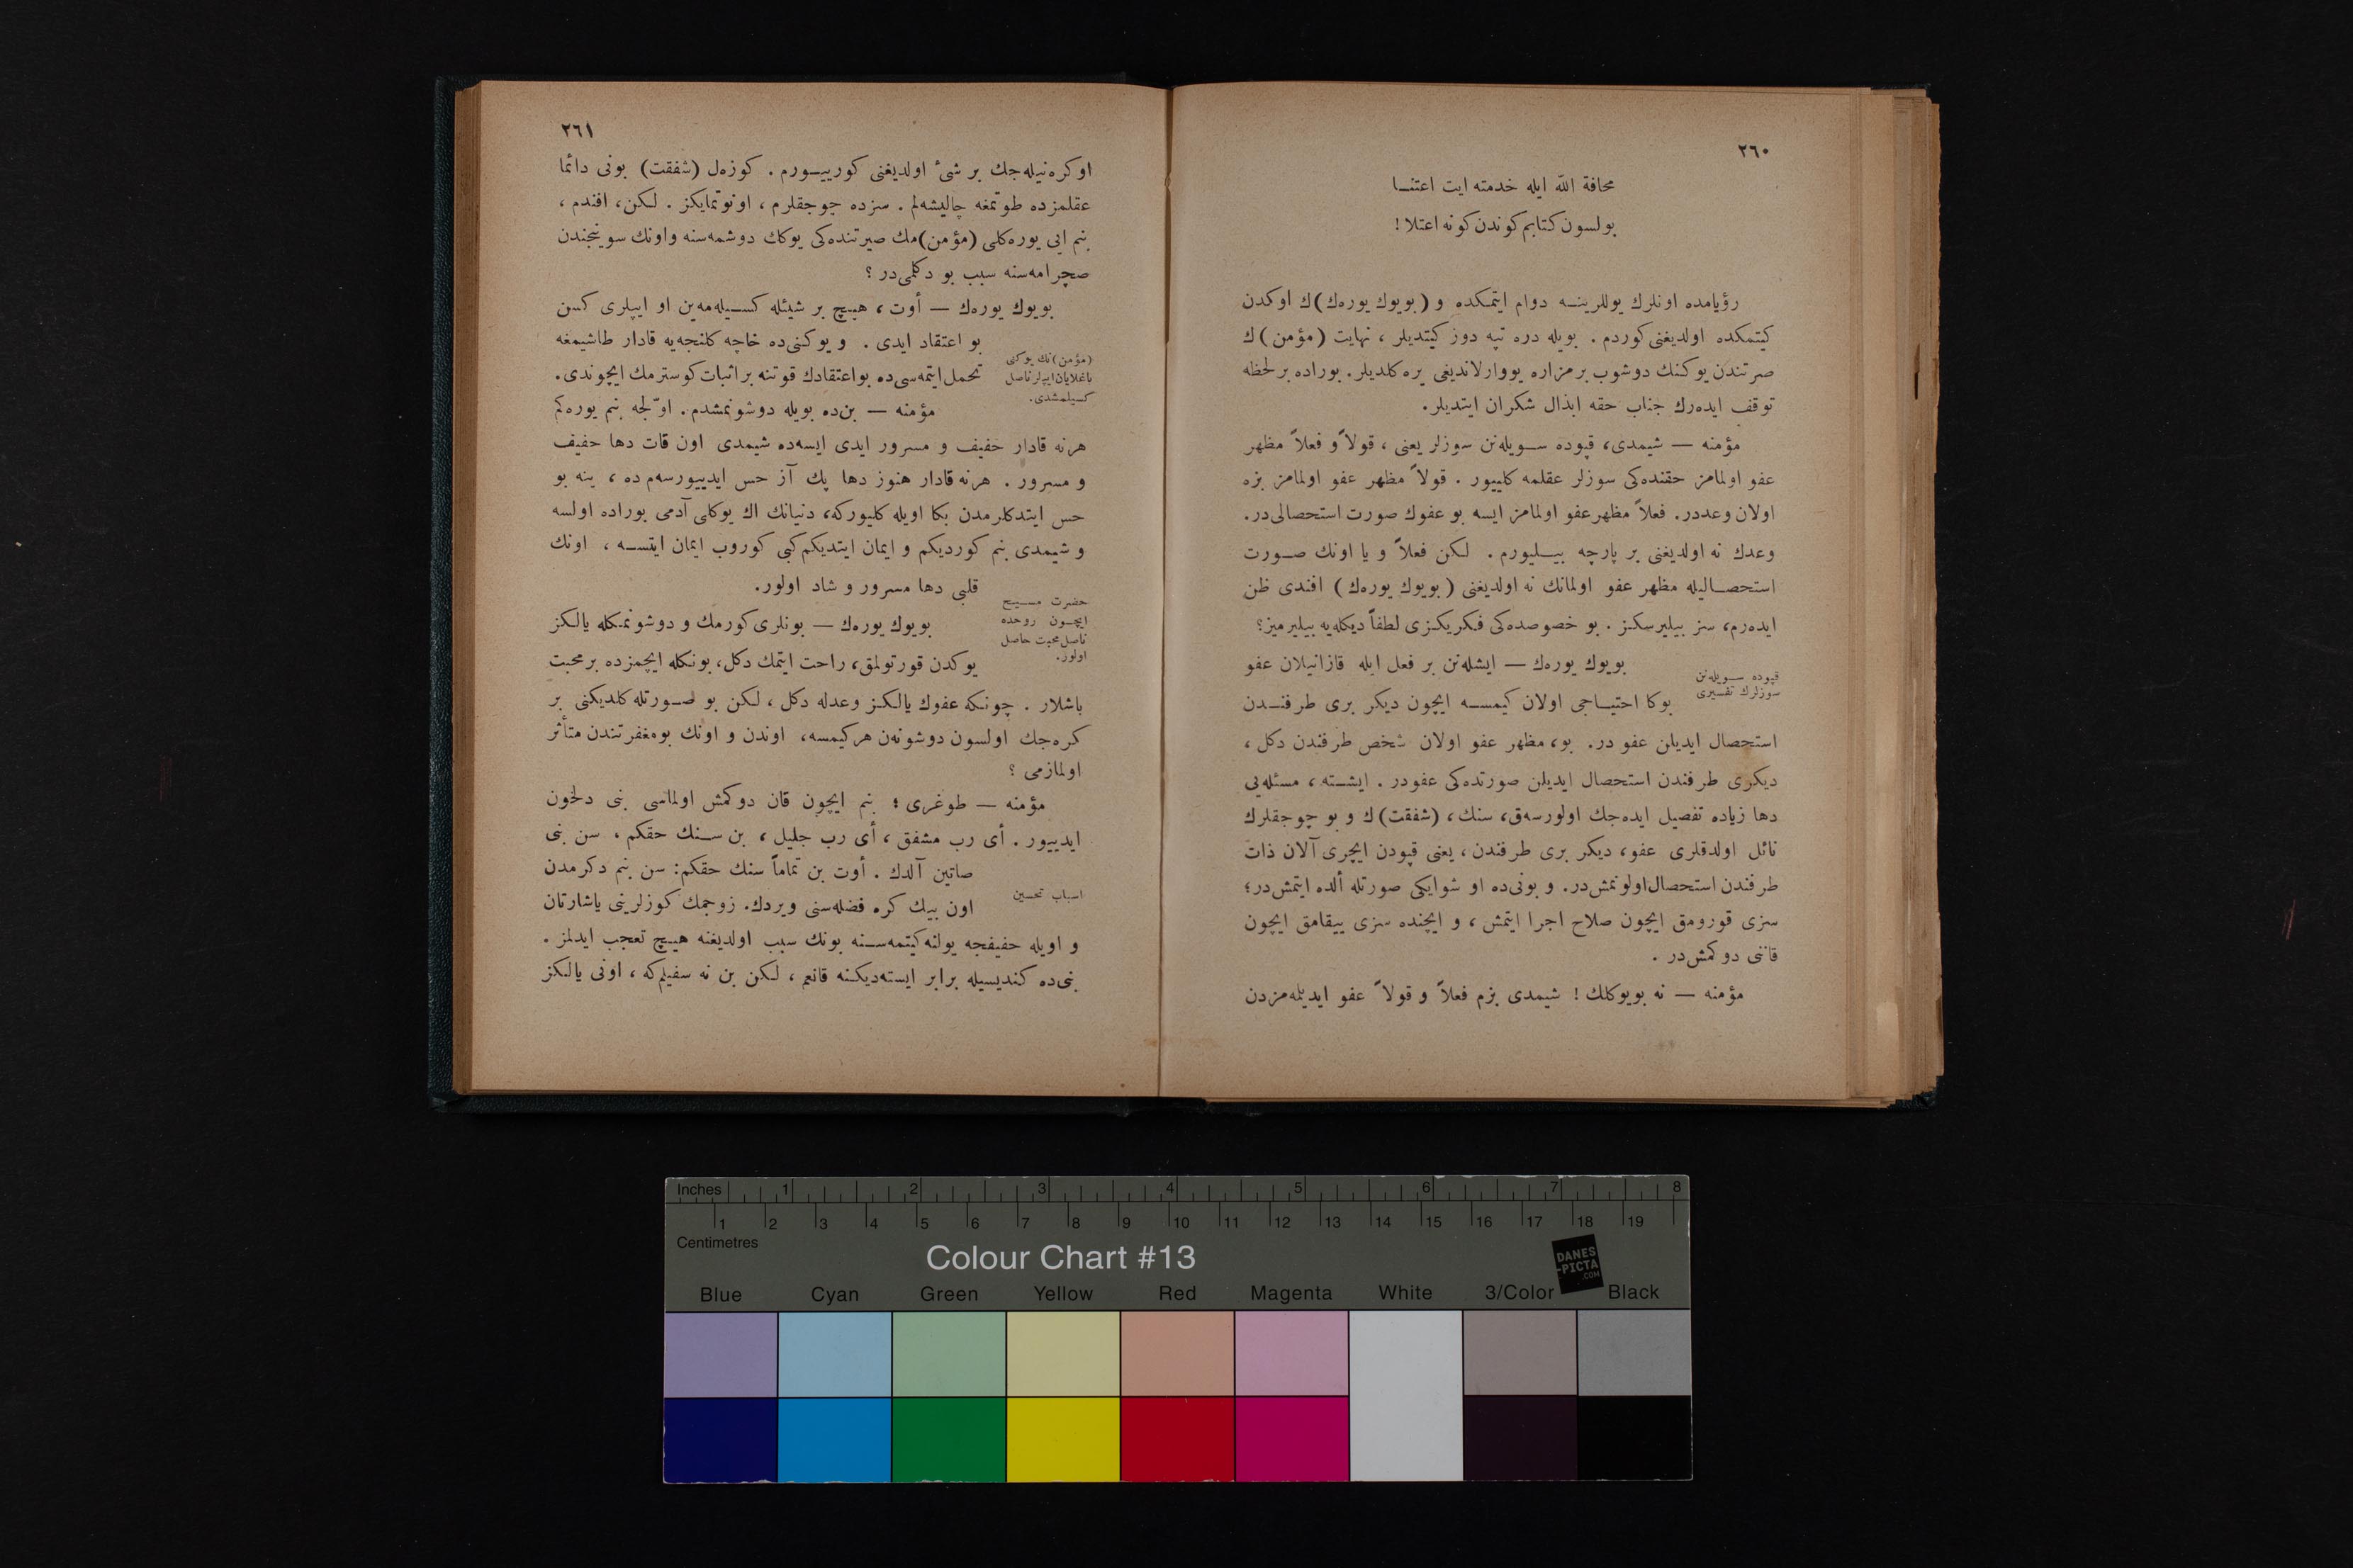 ٢٦٠
مخافة الله ايله خدمته ايت اعتنا
بولسون كتابم كوندن كونه اعتلا !
رؤيامده اونلرك يوللرينه دوام ايتمكده و (بويوك يورەك)ك اوكدن
كيتمكده اولديغنى كوردم . بويله دره تپه دوز كيتديلر ، نهايت (مؤمن)ك
صرتندن يوكنك دوشوب بر مزاره يووارلانديغى يره كلديلر. بوراده بر لحظه
توقف ايدەرك جناب حقه ابذال شكران ايتديلر.
مؤمنه — شيمدى، قپوده سويلەنن سوزلر يعنى ، قولاً و فعلاً مظهر
عفو اولمامز حقندەكى سوزلر عقلمه كلييور . قولاً مظهر عفو اولمامز بزه
اولان وعددر. فعلاً مظهر عفو اولمامز ايسه بو عفوك صورت استحصالى‌در.
وعدك نه اولديغنى بر پارچه بيليورم . لكن فعلاً و يا اونك صورت
استحصاليله مظهر عفو اولمانك نه اولديغنى (بويوك يورەك) افندى ظن
ايدەرم، سز بيليرسكز . بو خصوصدەكى فكريكزى لطفاً ديكلەيه بيليرميز؟
قپوده سويلەنن
سوزلرك تفسيرى
بويوك يورەك — ايشلەنن بر فعل ايله قازانيلان عفو
بوكا احتياجى اولان كيمسه ايچون ديكر برى طرفندن
استحصال ايديلن عفو در. بو، مظهر عفو اولان شخص طرفندن دكل ،
ديكرى طرفندن استحصال ايديلن صورتدەكى عفودر . ايشته ، مسئلەيى
دها زياده تفصيل ايدەجك اولورسەق، سنك، (شفقت)ك و بو چوجقلرك
نائل اولدقلرى عفو، ديكر برى طرفندن ، يعنى قپودن ايچرى آلان ذات
طرفندن استحصال اولونمش‌در. و بونى‌ده او شو ايكى صورتله ألده ايتمش‌در؛
سزى قورومق ايچون صلاح اجرا ايتمش ، و ايچنده سزى ييقامق ايچون
قاننى دوكمش‌در .
مؤمنه — نه بويوكلك ! شيمدى بزم فعلاً و قولاً عفو ايديلمەمزدن
٢٦١
اوكرەنيلەجك بر شئ اولديغنى كورييورم . كوزەل (شفقت) بونى دائما
عقلمزده طوتمغه چاليشەلم . سزده چوجقلرم ، اونوتمايكز . لكن، افندم ،
بنم ايى يورەكلى (مؤمن)مك صيرتندەكى يوكك دوشمەسنه و اونك سوينجندن
صچرامەسنه سبب بو دكلمى‌در ؟
بويوك يورەك — أوت ، هيچ بر شيئله كسيلەمەين او ايپلرى كسن
بو اعتقاد ايدى . و يوكنى‌ده خاچه كلنجەيه قادار طاشيمغه
تحمل ايتمەسى‌ده بو اعتقادك قوتنه بر اثبات كوسترمك ايچوندى.
(مؤمن)نك يوكنى
باغلايان ايپلر ناصل
كسيلمشدى.
مؤمنه — بن‌ده بويله دوشونمشدم. اوّلجه بنم يورەكم
هرنه قادار خفيف و مسرور ايدى ايسەده شيمدى اون قات دها خفيف
و مسرور . هرنه قادار هنوز دها پك آز حس ايدييورسەم‌ده ، ينه بو
حس ايتدكلرمدن بكا اويله كليوركه، دنيانك اك يوكلى آدمى بوراده اولسه
و شيمدى بنم كورديكم و ايمان ايتديكم كبى كوروب ايمان ايتسه ، اونك
قلبى دها مسرور و شاد اولور.
حضرت مسيح
ايچون روحده
ناصل محبت حاصل
اولور.
بويوك يورەك — بونلرى كورمك و دوشونمكله يالكز
يوكدن قورتولمق، راحت ايتمك دكل، بونكله ايچمزده بر محبت
باشلار . چونكه عفوك يالكز وعدله دكل ، لكن بو صورتله كلديكنى بر
كرەجك اولسون دوشونەن هر كيمسه، اوندن و اونك بو مغفرتندن متأثر
اولمازمى ؟
مؤمنه — طوغرى ؛ بنم ايچون قان دوكمش اولماسى بنى دلخون
ايدييور . أى رب مشفق ، أى رب جليل ، بن سنك حقكم ، سن بنى
صاتين آلدك . أوت بن تماماً سنك حقكم: سن بنم دكرمدن
اون بيك كره فضلەسنى ويردك. زوجمك كوزلرينى ياشارتان
اسباب تحسين
و اويله خفيفجه يولنه كيتمەسنه بونك سبب اولديغنه هيچ تعجب ايدلمز .
بنى‌ده كنديسيله برابر ايستەديكنه قانعم ، لكن بن نه سفيلم‌كه ، اونى يالكز
Inches 1 2 3 4 5 6 7 8
1 2 3 4 5 6 7 8 9 10 11 12 13 14 15 16 17 18 19
Centimetres
Colour Chart #13
DANES
-PICTA
.COM
Blue Cyan Green Yellow Red Magenta White 3/Color Black